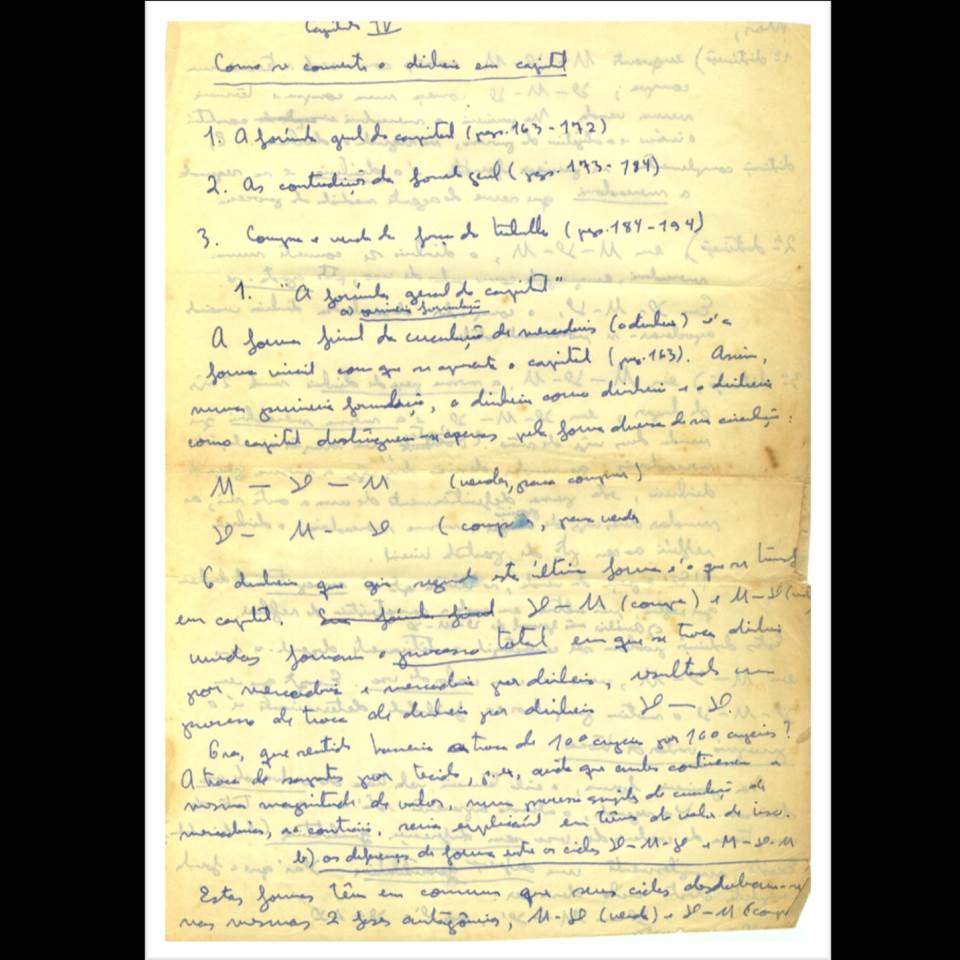 Capítulo IV
Como se converte o dinheiro em capital
1. A fórmula geral do capital (pags. 163-172)
2. As contradições da fórmula geral (pgs. 173-184)
3. Compra e venda da força de trabalho (pgs. 184-194)
1. "A fórmula geral do capital"
a) primeira formulação
A forma final da circulação de mercadorias (o dinheiro) é a
forma inicial com que se apresenta o capital (pag. 163). Assim,
numa primeira formulação, o dinheiro como dinheiro e o dinheiro
como capital distinguem-se apenas pela forma diversa de sua circulação:
M — D — M (vender, para comprar)
D — M — D (comprar, para vender
O dinheiro que gira segundo esta última forma é o que se transf
em capital. D — M (compra) e M — D
unidas formam o processo total em que se troca dinheiro
por mercadoria e mercadoria por dinheiro, resultado um
processo de troca de dinheiro por dinheiro D — D.
Ora, que sentido haveria a troca de 100 cruzeiros por 100 cruzeiros?
A troca de sapatos por tecido, p. ex., ainda que ambos contivessem a
mesma magnitude de valor, num processo simples de circulação de
mercadorias, ao contrário, seria explicável em têrmos de valor de uso.
b) as diferenças de forma entre os ciclos D-M-D e M-D-M
Estas formas têm em comum que seus ciclos desdobram-se
nas mesmas 2 fases antagônicas, M-D (venda) e D-M (comp